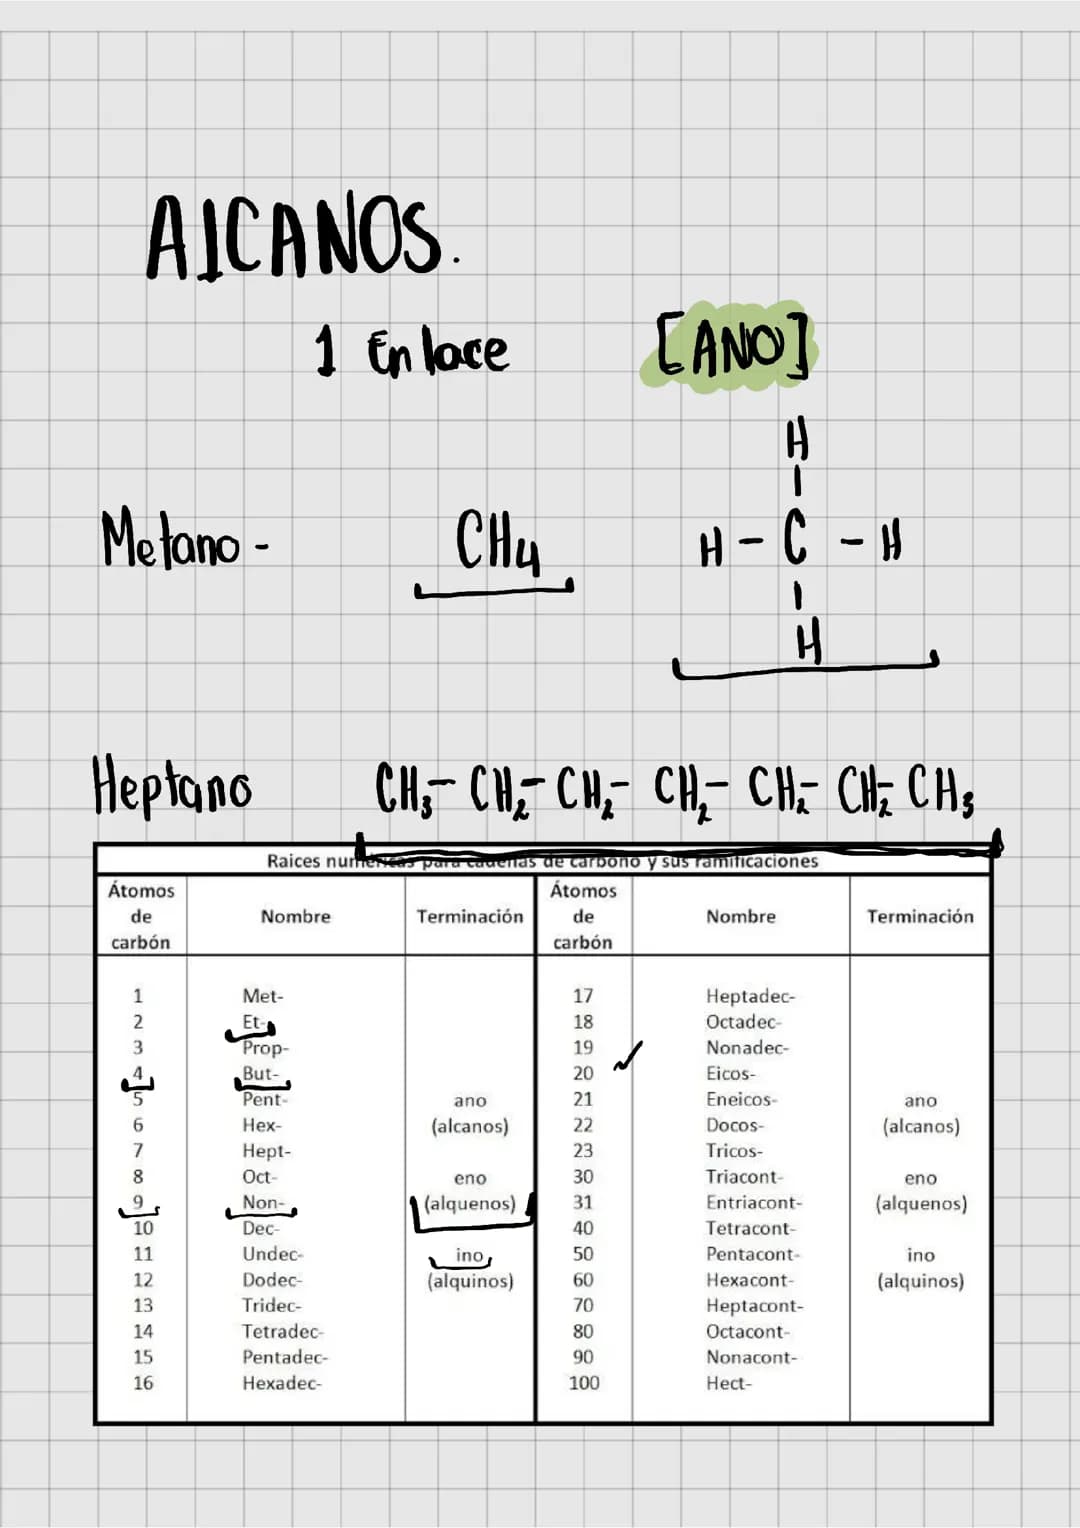 AlCANOS.
1 Enlace [ANO]
H
Metano - CH4 H - C - H
H
Heptano CH3 - CH2 - CH2 - CH2 - CH2 - CH2 - CH3
Raices numéricas para cadenas de carbono y sus ramificaciones
Átomos de carbón Nombre Terminación Átomos de carbón Nombre Terminación
1 Met- 17 Heptadec-
2 Et- 18 Octadec-
3 Prop- 19 Nonadec-
4 But- 20 Eicos-
5 Pent- ano 21 Eneicos- ano
6 Hex- (alcanos) 22 Docos- (alcanos)
7 Hept- 23 Tricos-
8 Oct- eno 30 Triacont- eno
9 Non- (alquenos) 31 Entriacont- (alquenos)
10 Dec- 40 Tetracont-
11 Undec- ino 50 Pentacont- ino
12 Dodec- (alquinos) 60 Hexacont- (alquinos)
13 Tridec- 70 Heptacont-
14 Tetradec- 80 Octacont-
15 Pentadec- 90 Nonacont-
16 Hexadec- 100 Hect-